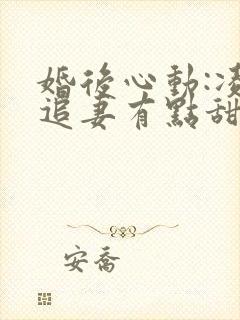 婚後心動:凌
追妻有點甜
安喬